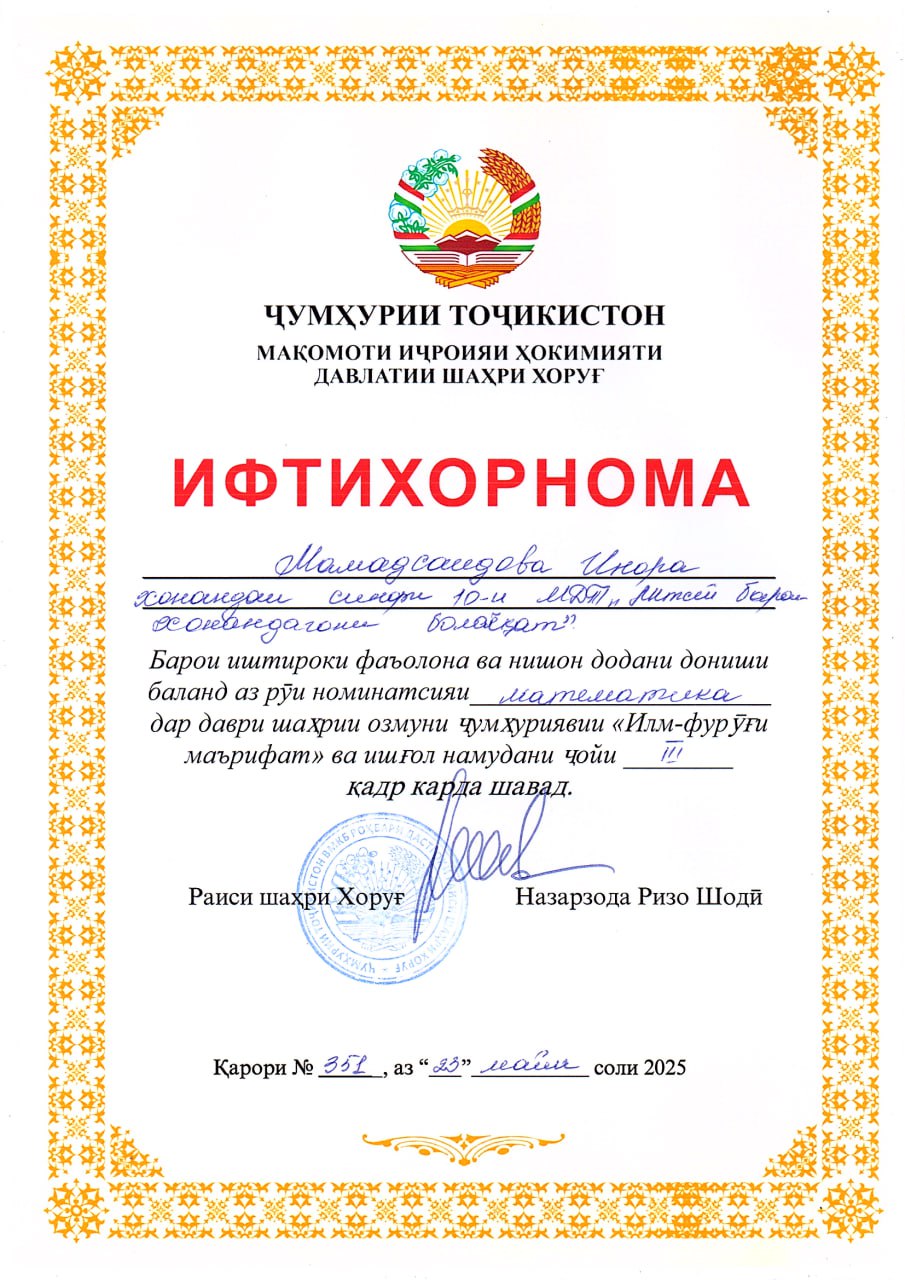 ҶУМҲУРИИ ТОҶИКИСТОН
МАҚОМОТИ ИҶРОИЯИ ҲОКИМИЯТИ
ДАВЛАТИИ ШАҲРИ ХОРУҒ
ИФТИХОРНОМА
Мамадсаидова Инора
хонандаи синфи 10-и МДТ „Литсей барои
хонандагони болаёқат”
Барои иштироки фаъолона ва нишон додани дониши
баланд аз рӯи номинатсияи математика
дар даври шаҳрии озмуни ҷумҳуриявии «Илм-фурӯғи
маърифат» ва ишғол намудани ҷойи III
қадр карда шавад.
Раиси шаҳри Хоруғ Назарзода Ризо Шодӣ
Қарори № 351, аз “23” майи соли 2025